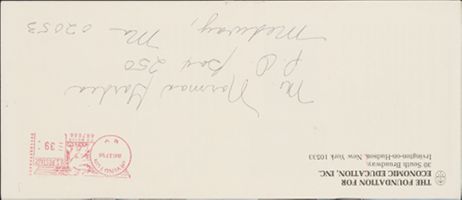 THE FOUNDATION FOR
ECONOMIC EDUCATION, INC.
30 South Broadway,
Irvington-on-Hudson, New York 10533
.39
Mr Norman
P O Box 250
Medway,
Ma 02053